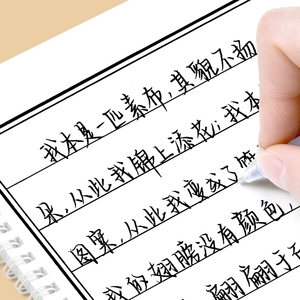 我本是一匹素布，其貌不扬
果，从此我锦上添花；我本
图案，从此我变成了
我的翅膀没有颜色
翩翩于